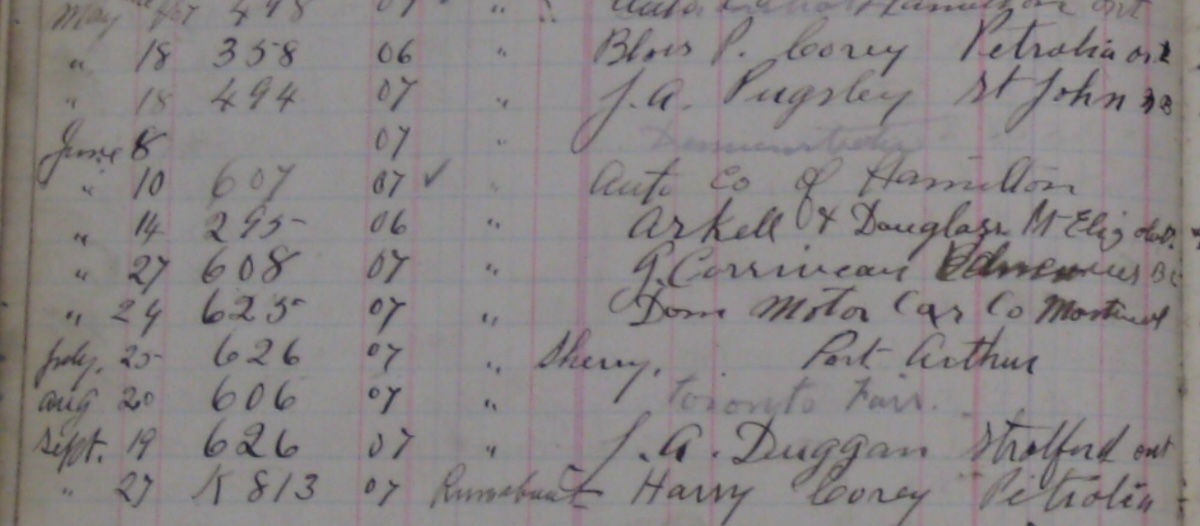 May 498 07 " Hamilton ont
" 18 358 06 " P. Corey Petrolia ont
" 18 494 07 " J.A. Pugsley St John NB
June 8 07 "
" 10 607 07 ✓ " Auto Co of Hamilton
" 14 295 06 " Arkell & Douglass
" 27 608 07 " G. Corriveau
" 24 625 07 " Dom Motor Car Co Montreal
July. 25 626 07 " Sherry, Port Arthur
aug 20 606 07 " Toronto Fair.
Sept. 19 626 07 " J.A. Duggan Stratford ont
" 27 K 813 07 Runabout Harry Corey Petrolia